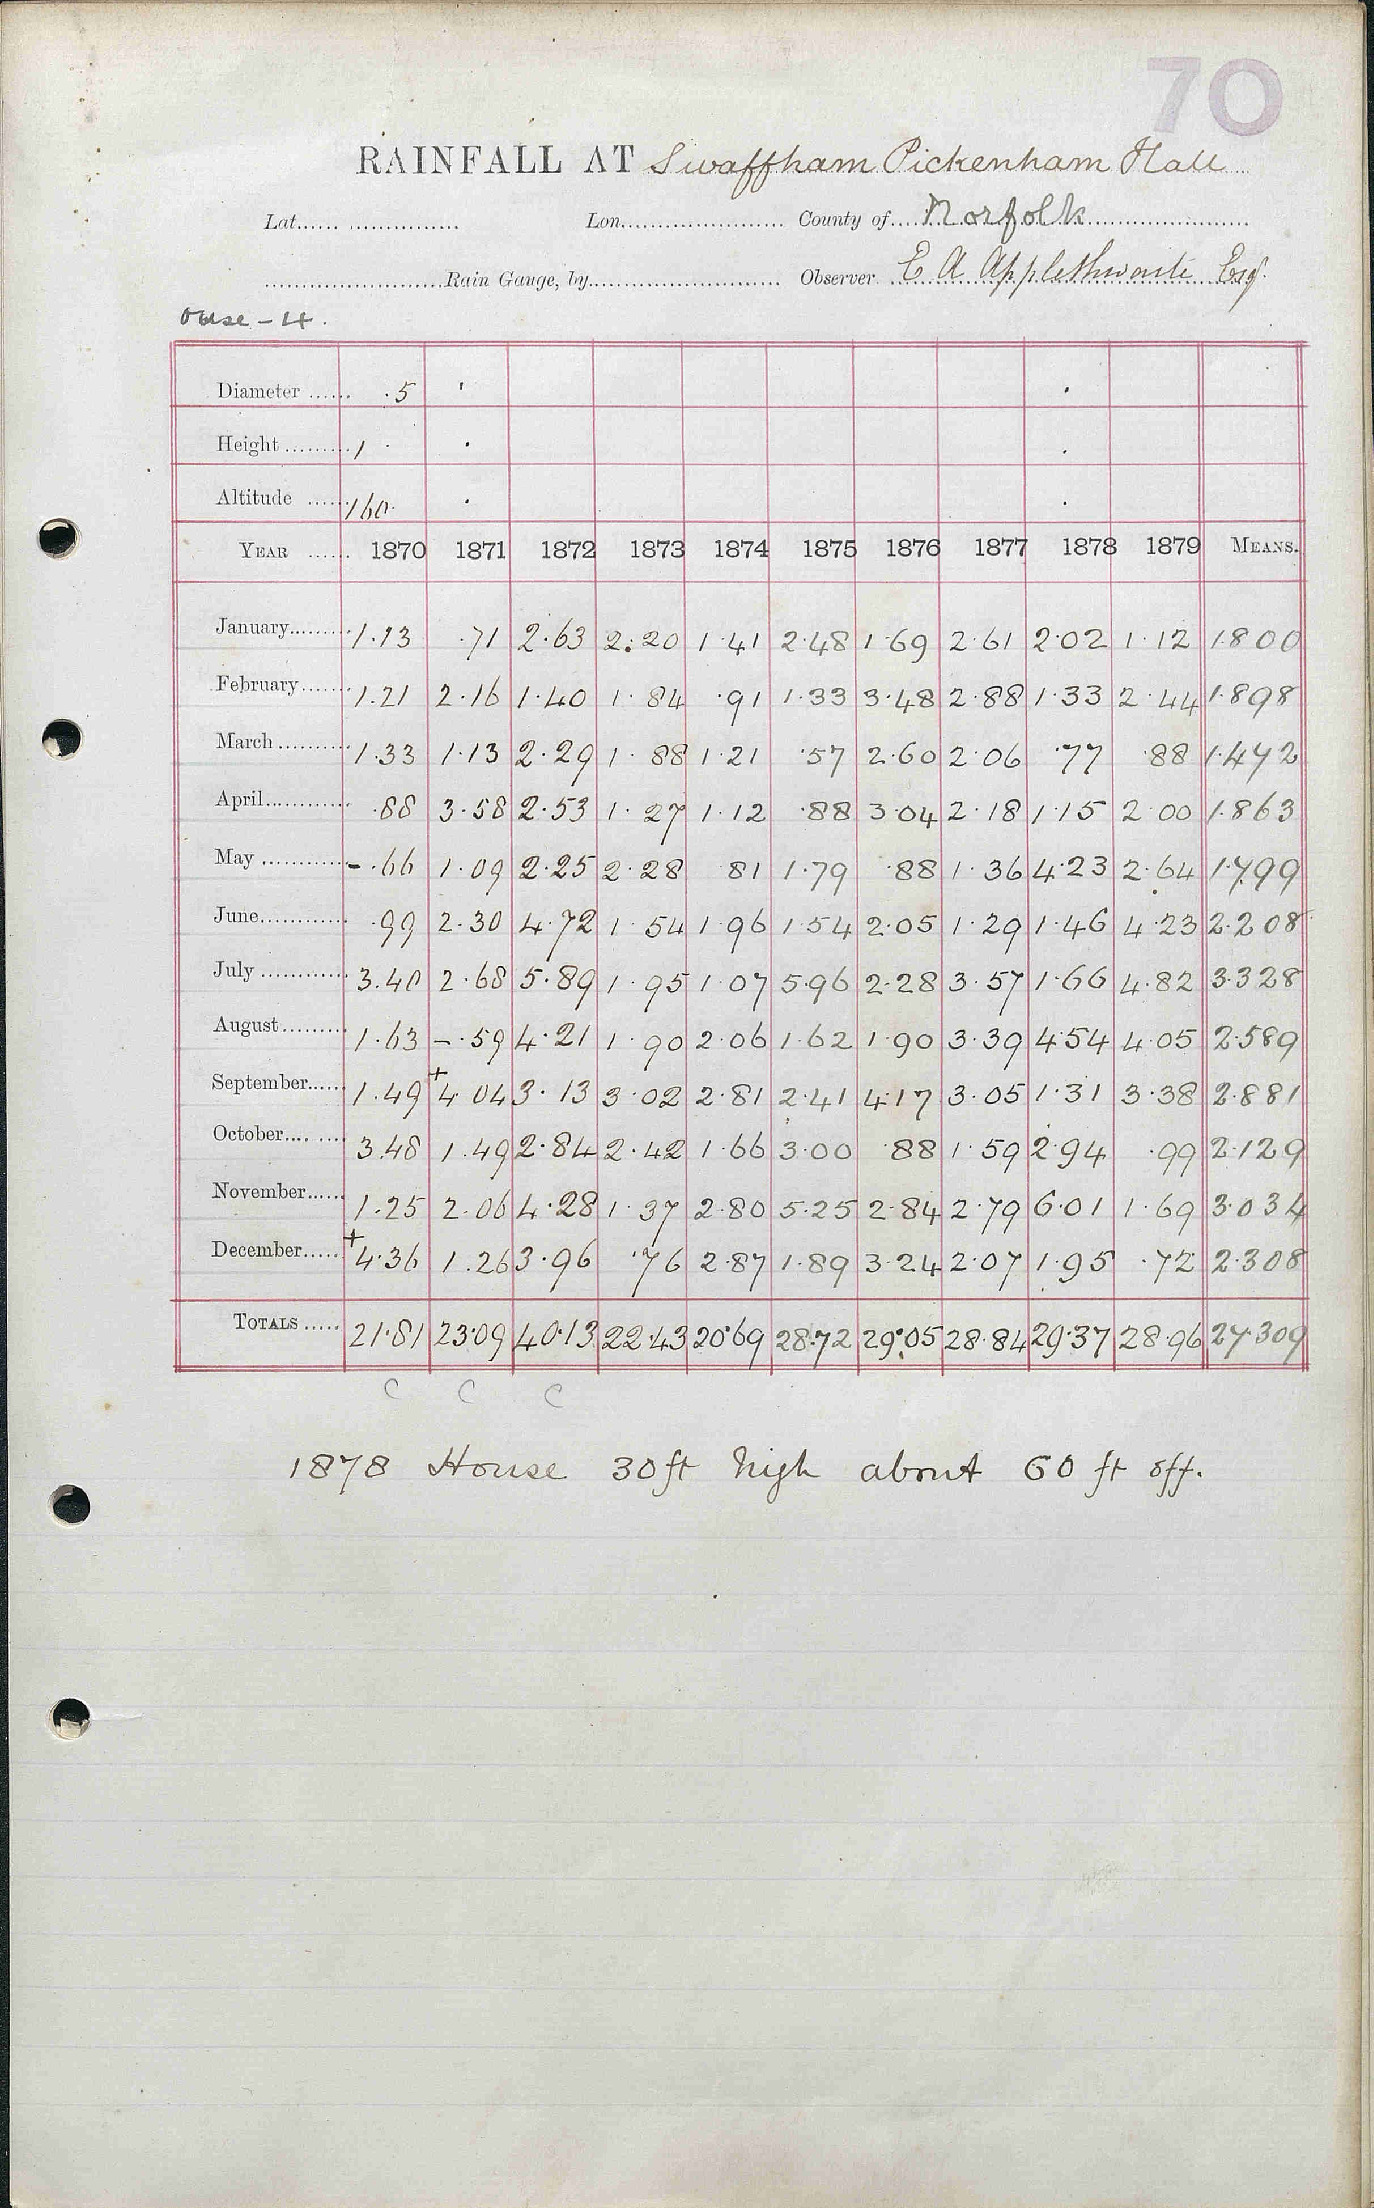 70
RAINFALL AT Swaffham Pickenham Hall
Lat. Lon. County of Norfolk
Rain Gauge, by Observer E A Applethwaite Esq.
Ouse - 4.
Diameter .5
Height 1
Altitude 160
YEAR 1870 1871 1872 1873 1874 1875 1876 1877 1878 1879 MEANS.
January 1.13 .71 2.63 2.20 1.41 2.48 1.69 2.61 2.02 1.12 1.800
February 1.21 2.16 1.40 1.84 .91 1.33 3.48 2.88 1.33 2.44 1.898
March 1.33 1.13 2.29 1.88 1.21 .57 2.60 2.06 .77 .88 1.472
April .88 3.58 2.53 1.27 1.12 .88 3.04 2.18 1.15 2.00 1.863
May - .66 1.09 2.25 2.28 81 1.79 .88 1.36 4.23 2.64 1.799
June .99 2.30 4.72 1.54 1.96 1.54 2.05 1.29 1.46 4.23 2.208
July 3.40 2.68 5.89 1.95 1.07 5.96 2.28 3.57 1.66 4.82 3.328
August 1.63 - .59 4.21 1.90 2.06 1.62 1.90 3.39 4.54 4.05 2.589
September 1.49 + 4.04 3.13 3.02 2.81 2.41 4.17 3.05 1.31 3.38 2.881
October 3.48 1.49 2.84 2.42 1.66 3.00 .88 1.59 2.94 .99 2.129
November 1.25 2.06 4.28 1.37 2.80 5.25 2.84 2.79 6.01 1.69 3.034
December + 4.36 1.26 3.96 .76 2.87 1.89 3.24 2.07 1.95 .72 2.308
TOTALS 21.81 23.09 40.13 22.43 20.69 28.72 29.05 28.84 29.37 28.96 27.309
C C C
1878 House 30ft high about 60 ft off.